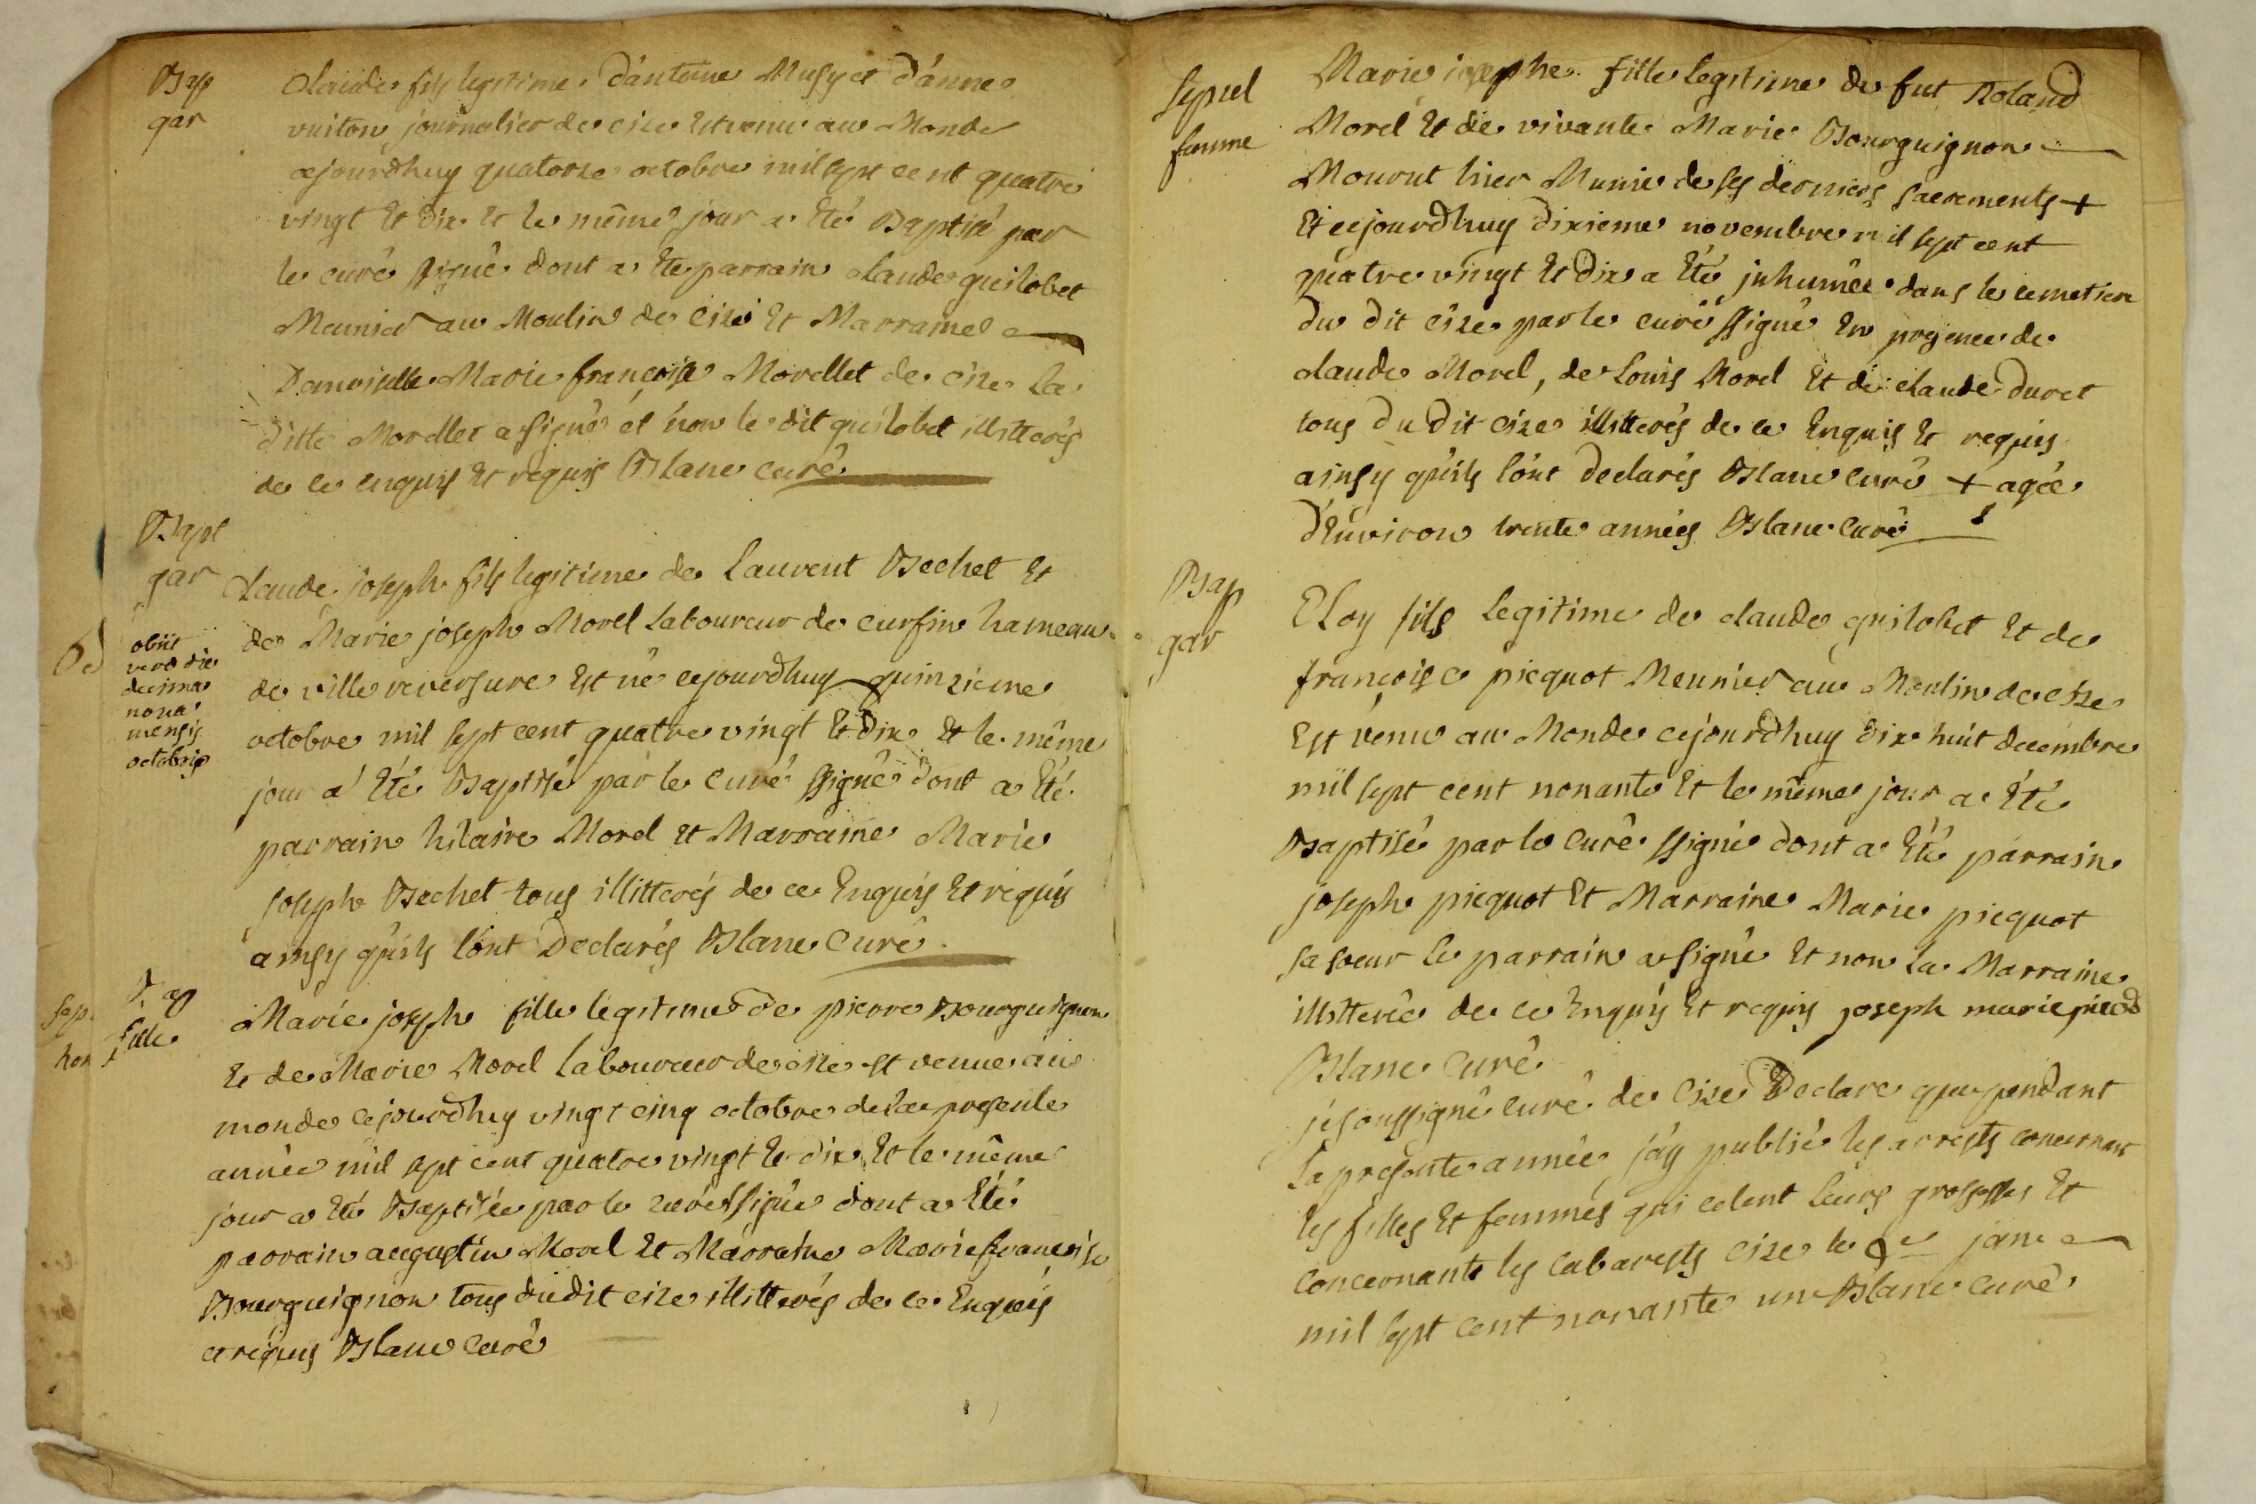 Bap
gar
Claude fils legitime d'antoine Musy et d'anne
vuiton journalier de cize Est venu au Monde
cejourdhuy quatorze octobre mil sept cent quatre
vingt Et dix Et le même jour a Eté Baptisé par
le curé ssigné dont a Ete parrain claude guilobet
Meunier au Moulin de Cize Et Marraine
Demoiselle Marie françoise Morellet de cize La
ditte Morellet a signé et non le dit guilobet illitterés
de ce enquis Et requis Blanc curé
Bapt
gar
obiit
vero die
decima
nona
mensis
octobris
Claude joseph fils legitime de Laurent Bechet Et
de Marie joseph Morel Laboureur de curfin hameau
de ville reversure Est né cejourdhuy quinzieme
octobre mil sept cent quatre vingt Et dix Et le même
jour a Eté Baptisé par le Curé ssigné dont a Eté
parrain hilaire Morel et Marraine Marie
joseph Bechet tous illitterés de ce Enquis Et requis
ainsy qu'ils l'ont Declarés Blanc Curé
Bap
fille
Marie joseph fille legitime de pierre Bourguignon
Et de Marie Morel Laboureur de cize est venue au
monde cejourdhuy vingt cinq octobre de la presente
année mil sept cent quatre vingt Et dix Et le même
jour a Eté Baptisée par le curé ssigné dont a Eté
parrain augustin Morel Et Marraine Marie francoise
Bourguignon tous dudit cize illitterés de ce Enquis
et requis Blanc curé
sep.
hom
Sepul
femme
Marie josephe fille legitime de fut Roland
Morel Et de vivante Marie Bourguignon
Mourut hier Munie de ses derniers sacrements +
Et cejourdhuy dixieme novembre mil sept cent
quatre vingt Et dix a Eté inhumée dans le cemetiere
du dit cize par le curé ssigné En presence de
claude Morel, de Louis Morel Et de claude duret
tous du dit cize illitterés de ce Enquis Et requis
ainsy qu'ils l'ont Declarés Blanc curé + agée
d'environ trente années Blanc curé
Bap
gar
Eloy fils Legitime de claude guilobet Et de
françoise picquot Meunier au Moulin de cize
Est venu au Monde cejourdhuy dix huit decembre
mil sept cent nonante Et le même jour a Eté
Baptisé par le Curé ssigné dont a Eté parrain
joseph picquot Et Marraine Marie picquot
sa soeur le parrain a signé Et non la Marraine
illitterée de ce Enquis Et requis joseph marie
Blanc Curé
je soussigné curé de Cize Declare que pendant
La presente année j'ay publié les arrests concernant
les filles Et femmes qui celent leurs grossesses Et
concernants les cabarests cize le janv
mil sept cent nonante un Blanc curé